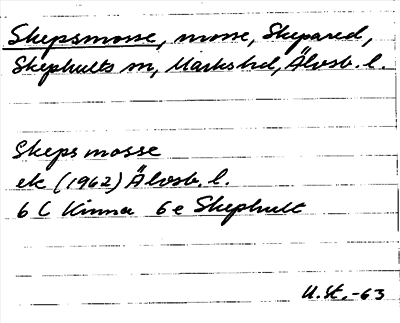 Skepsmosse, mosse, Skepared,
Skephults sn, Marks hd, Älvsb. l.
Skepsmosse
ek (1962) Älvsb. l.
6 C Kinna 6 e Skephult
U.St.-63